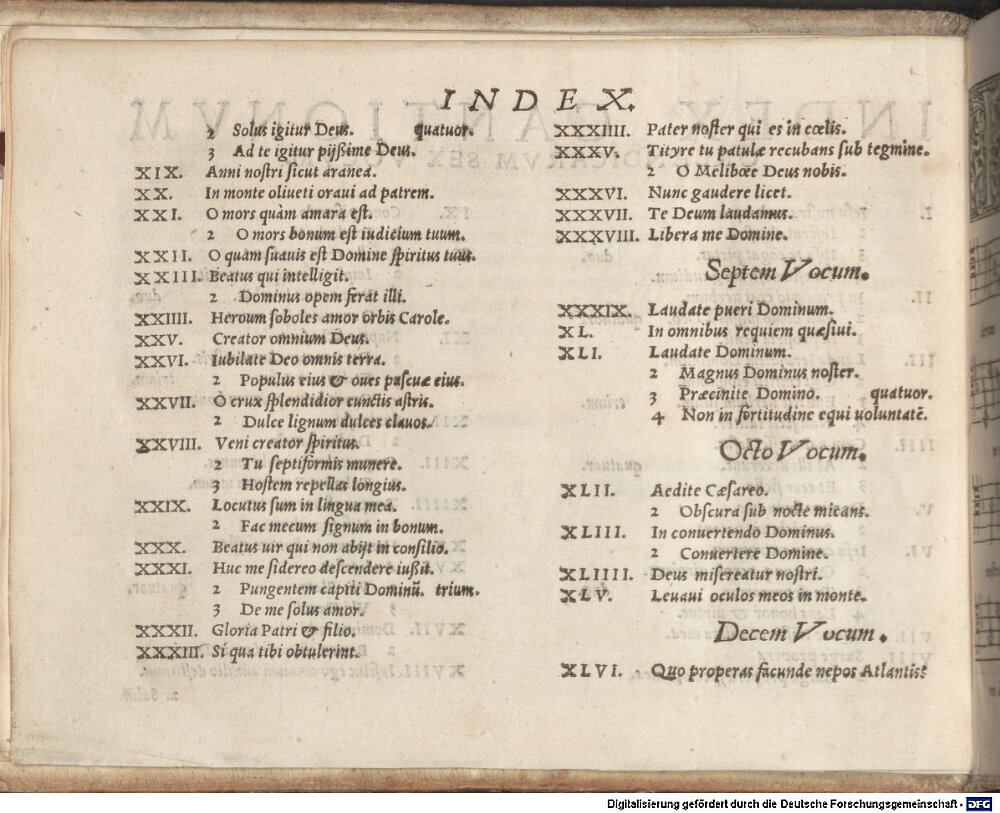 INDEX.
2 Solus igitur Deus. quatuor.
3 Ad te igitur pijßime Deus.
XIX. Anni nostri sicut aranea.
XX. In monte oliueti oraui ad patrem.
XXI. O mors quàm amara est.
2 O mors bonum est iudicium tuum.
XXII. O quàm suauis est Domine spiritus tuus.
XXIII. Beatus qui intelligit.
2 Dominus opem ferat illi.
XXIIII. Heroum soboles amor orbis Carole.
XXV. Creator omnium Deus.
XXVI. Iubilate Deo omnis terra.
2 Populus eius & oues pascuæ eius.
XXVII. O crux splendidior cunctis astris.
2 Dulce lignum dulces clauos.
XXVIII. Veni creator spiritus.
2 Tu septiformis munere.
3 Hostem repellas longius.
XXIX. Locutus sum in lingua mea.
2 Fac mecum signum in bonum.
XXX. Beatus uir qui non abijt in consilio.
XXXI. Huc me sidereo descendere iußit.
2 Pungentem capiti Dominū. trium.
3 De me solus amor.
XXXII. Gloria Patri & filio.
XXXIII. Si qua tibi obtulerint.
XXXIIII. Pater noster qui es in cœlis.
XXXV. Tityre tu patulæ recubans sub tegmine.
2 O Melibœe Deus nobis.
XXXVI. Nunc gaudere licet.
XXXVII. Te Deum laudamus.
XXXVIII. Libera me Domine.
Septem Vocum.
XXXIX. Laudate pueri Dominum.
XL. In omnibus requiem quæsiui.
XLI. Laudate Dominum.
2 Magnus Dominus noster.
3 Præcinite Domino. quatuor.
4 Non in fortitudine equi voluntatē.
Octo Vocum.
XLII. Aedite Cæsareo.
2 Obscura sub nocte micans.
XLIII. In conuertendo Dominus.
2 Conuertere Domine.
XLIIII. Deus misereatur nostri.
XLV. Leuaui oculos meos in monte.
Decem Vocum.
XLVI. Quo properas facunde nepos Atlantis?
Digitalisierung gefördert durch die Deutsche Forschungsgemeinschaft - DFG